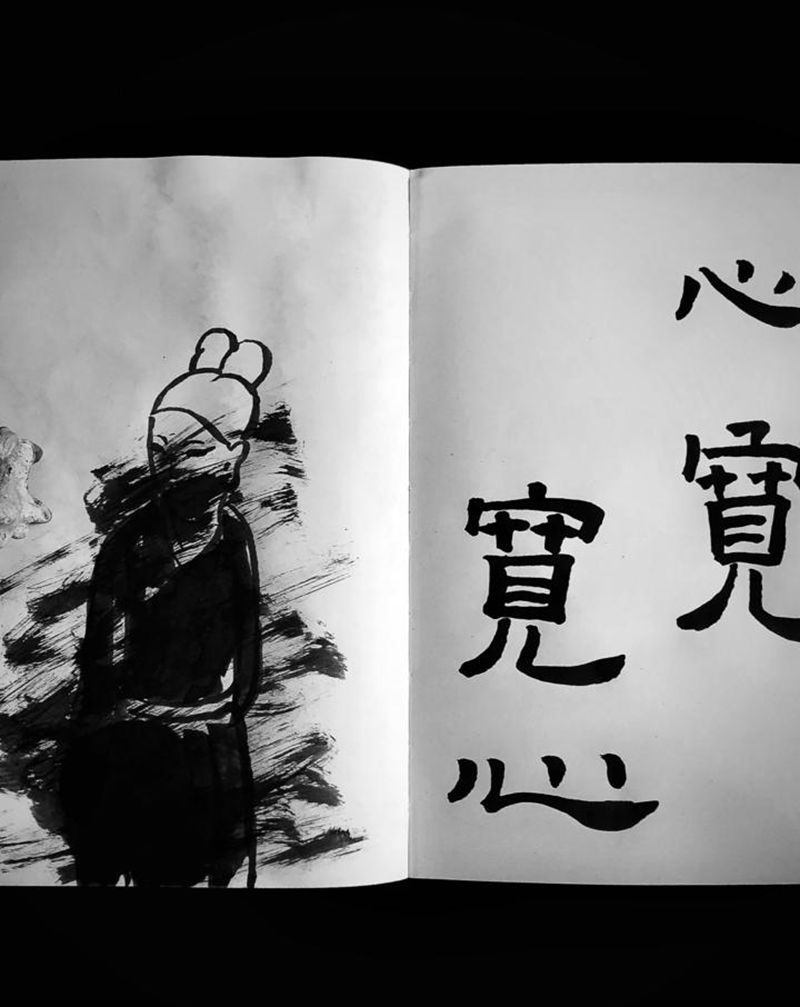 心寬
寬心